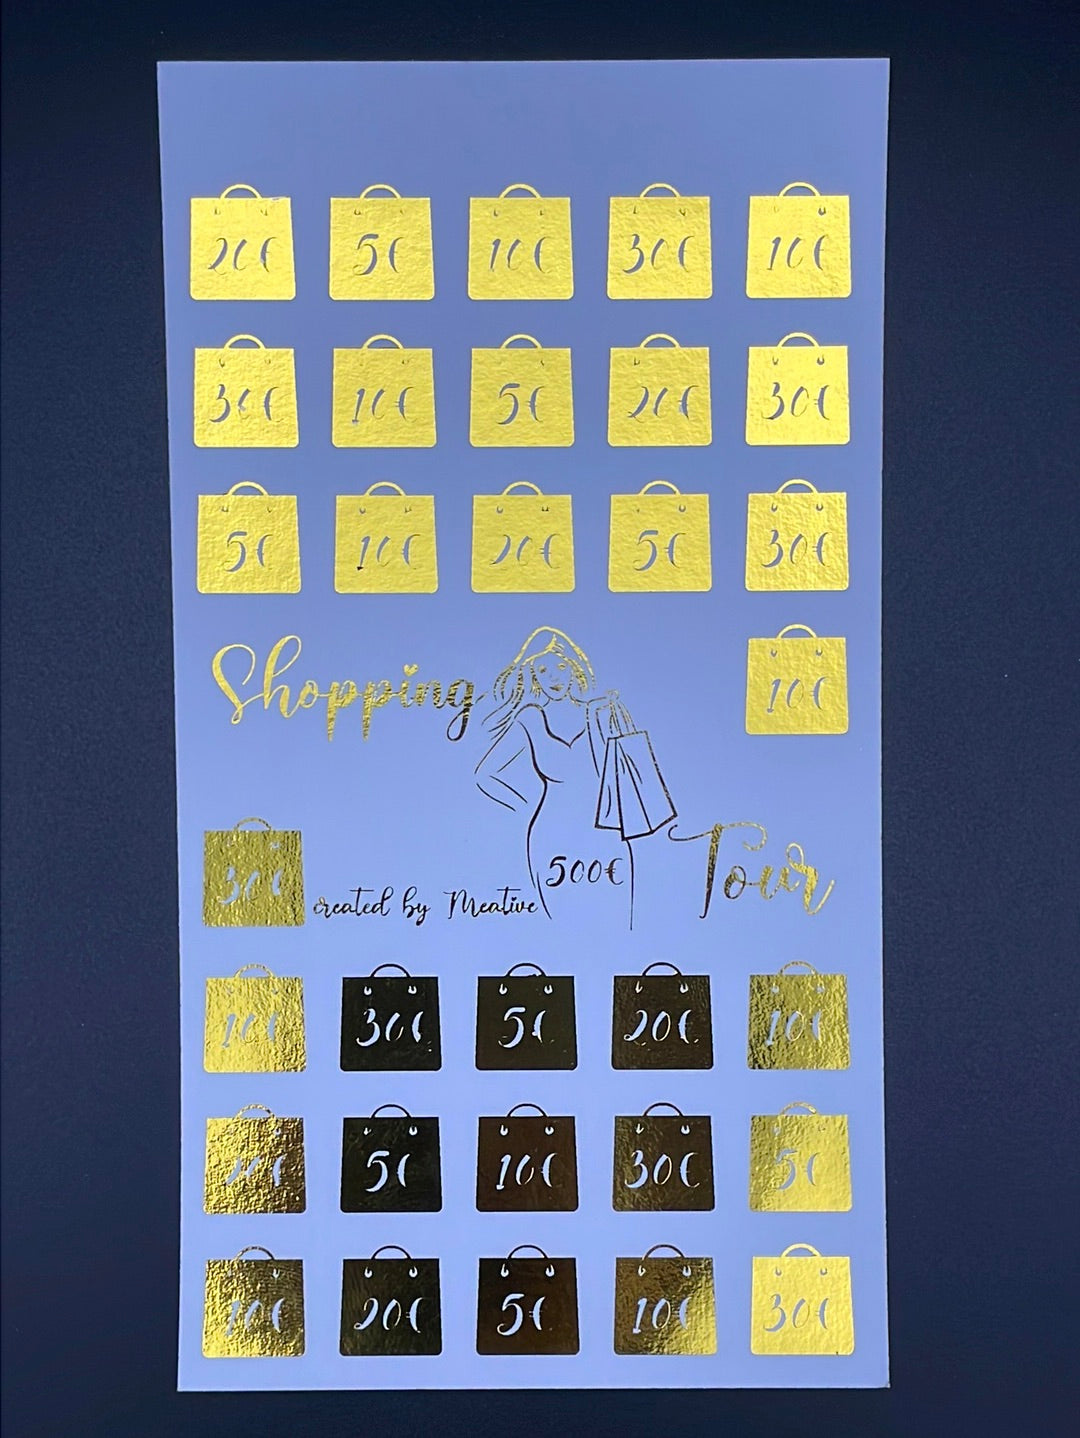 20€ 5€ 10€ 30€ 10€
30€ 10€ 5€ 20€ 30€
5€ 10€ 20€ 5€ 30€
Shopping
10€
30€
created by Meative
500€
Tour
10€ 30€ 5€ 20€ 10€
20€ 5€ 10€ 30€ 5€
10€ 20€ 5€ 10€ 30€